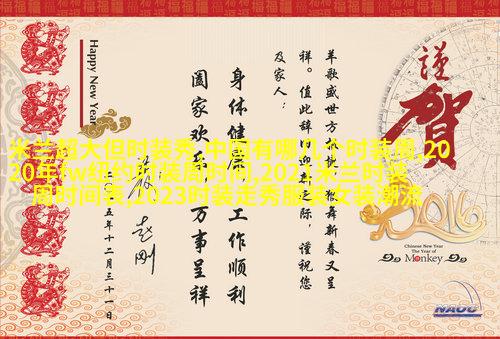 謹賀
2016
Chinese New Year
The Year of
Monkey
NAOC
羊歌盛世方 猴舞新春又呈
祥。值此辞旧迎新之际，谨祝您
及家人：
身体健康 工作顺利
阖家欢乐 万事呈祥
赵刚
五年十二月三十一日
Happy New Year
米兰超大但时装秀,中国有哪几个时装周,20
20年fw纽约时装周时间,2021米兰时装
周时间表,2023时装走秀服装女装潮流